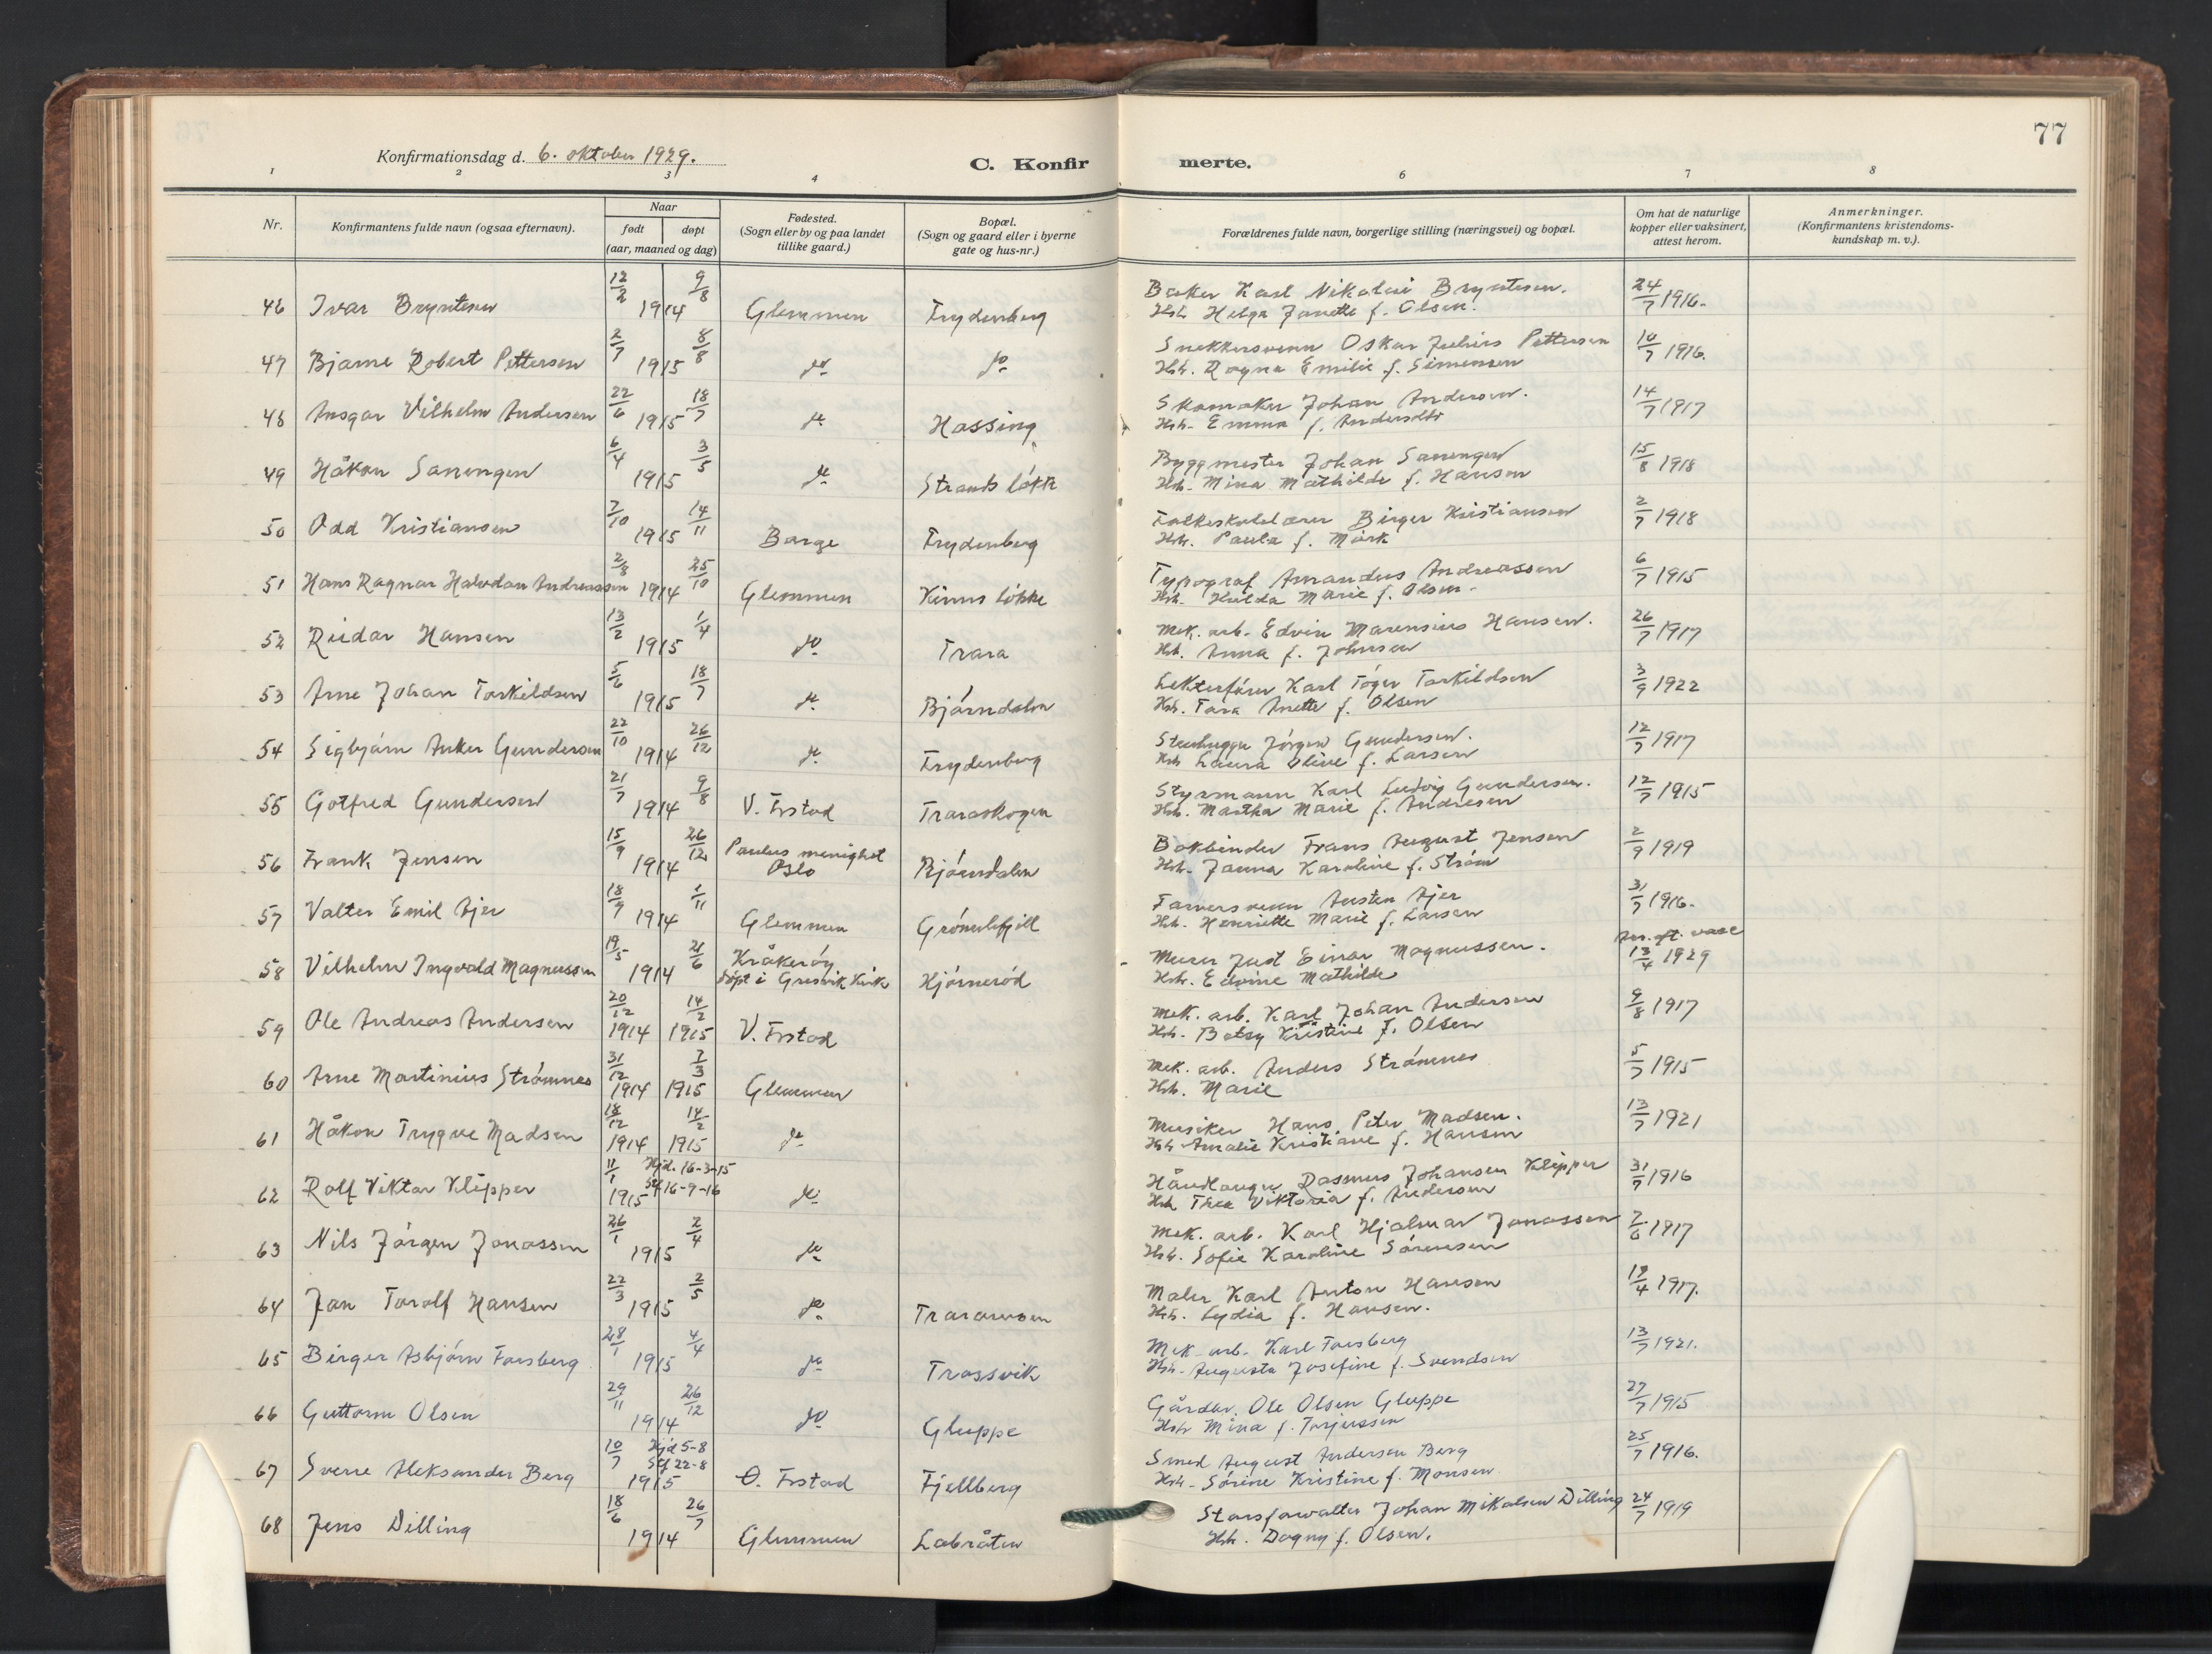 77
Konfirmationsdag d. 6. oktober 1929.
C. Konfirmerte.
1 2 3 4 6 7 8
Nr.
Konfirmantens fulde navn (ogsaa efternavn).
Naar
født døpt
(aar, maaned og dag)
Fødested.
(Sogn eller by og paa landet
tillike gaard.)
Bopæl.
(Sogn og gaard eller i byerne
gate og hus-nr.)
Forældrenes fulde navn, borgerlige stilling (næringsvei) og bopæl.
Om hat de naturlige
kopper eller vaksinert,
attest herom.
Anmerkninger.
(Konfirmantens kristendoms-
kundskap m. v.).
46 Ivar Bryntesen 12/2 9/8 1914 Glemmen Frydenberg Baker Karl Nikolai Bryntesen. 24/7 1916.
Hst. Helga Janette f. Olsen.
47 Bjarne Robert Pettersen 2/7 8/8 1915 do do Snekkersvenn Oskar Julius Pettersen 10/7 1916.
Hst. Ragna Emilie f. Simensen
48 Ansgar Vilhelm Andersen 22/6 18/7 1915 do Hassing Skomaker Johan Andersen. 14/7 1917
Hst. Emma f. Andersdtr
49 Håkon Sanengen 6/4 3/5 1915 do Strands løkk Byggmester Johan Sanengen 15/8 1918
Hst. Mina Mathilde f. Hansen
50 Odd Kristiansen 7/10 14/11 1915 Borge Frydenberg Folkeskolelærer Birger Kristiansen 2/7 1918
Hst. Paula f. Mørk
51 Hans Ragnar Halvdan Andreassen 2/8 25/10 1914 Glemmen Kiius løkke Typograf Amandus Andreassen 6/7 1915
Hst. Hulda Marie f. Olsen.
52 Reidar Hansen 13/2 1/4 1915 do Trara Mek. arb. Edvin Marensius Hansen. 26/7 1917
Hst. Anna f. Johnsen
53 Arne Johan Torkildsen 5/6 18/7 1915 do Bjørndalen Lekterfører Karl Tøger Torkildsen 3/9 1922
Hst. Tora Anette f. Olsen
54 Sigbjørn Anker Gundersen 22/10 26/12 1914 do Frydenberg Stenhugger Jørgen Gundersen. 12/7 1917
Hst. Laura Oline f. Larsen
55 Gotfred Gundersen 21/7 9/8 1914 V. Frstad Traraskogen Styrmann Karl Ludvig Gundersen. 12/7 1915
Hst. Martha Marie f. Andresen
56 Frank Jensen 15/9 26/12 1914 Paulus menighet
Oslo Bjørndalen Bokbinder Frans August Jensen 2/9 1919
Hst. Janna Karoline f. Strøm
57 Valter Emil Ajer 18/9 1/11 1914 Glemmen Grønnlifjell Farversvenn Austen Ajer 31/7 1916.
Hst. Henriette Marie f. Larsen
58 Vilhelm Ingvald Magnussen 19/5 21/6 1914 Kråkerøy
døpt i Gresvik Kirk Hjørnerød Murer Just Einar Magnussen. 13/4 1929
Hst. Edvine Mathilde
59 Ole Andreas Andersen 20/12 1914 14/2 1915 V. Frstad Mek. arb. Karl Johan Andersen 9/8 1917
Hst. Betsy Kristine f. Olsen
60 Arne Martinius Strømnes 31/12 1914 7/3 1915 Glemmen Mek. arb. Anders Strømnes 5/7 1915
Hst. Marie
61 Håkon Trygve Madsen 18/12 1914 14/2 1915 do Musiker Hans Peter Madsen. 13/7 1921
Hst. Amalie Kristiane f. Hansen
62 Rolf Viktor Klipper 11/1 1915 Hjd. 16-3-15
Stf 16-9-16 do Håndlanger Rasmus Johansen Klipper 31/7 1916
Hst. Thea Viktoria f. Andersen
63 Nils Jørgen Jonassen 26/1 2/4 1915 do Mek. arb. Karl Hjalmar Jonassen 2/6 1917
Hst. Sofie Karoline Sørensen
64 Jan Torolf Hansen 22/3 2/5 1915 do Traramoen Maler Karl Anton Hansen 19/4 1917.
Hst. Lydia f. Hansen.
65 Birger Asbjørn Forsberg 28/1 4/4 1915 do Trossvik Mek. arb. Karl Forsberg 13/7 1921.
Hst. Augusta Josefine f. Svendsen
66 Guttorm Olsen 29/11 26/12 1914 do Gluppe Gårdbr. Ole Olsen Gluppe 27/7 1915
Hst. Mina f. Torjussen
67 Sverre Aleksander Berg 10/7 Hjd 5-8
Stf 22-8 1915 Ø. Frstad Fjellberg Smed August Andersen Berg 25/7 1916.
Hst. Sørine Kristine f. Monsen
68 Jens Dilling 18/6 26/7 1914 Glemmen Labråten Stasforvalter Johan Mikalsen Dilling 24/7 1919
Hst. Dagny f. Olsen.